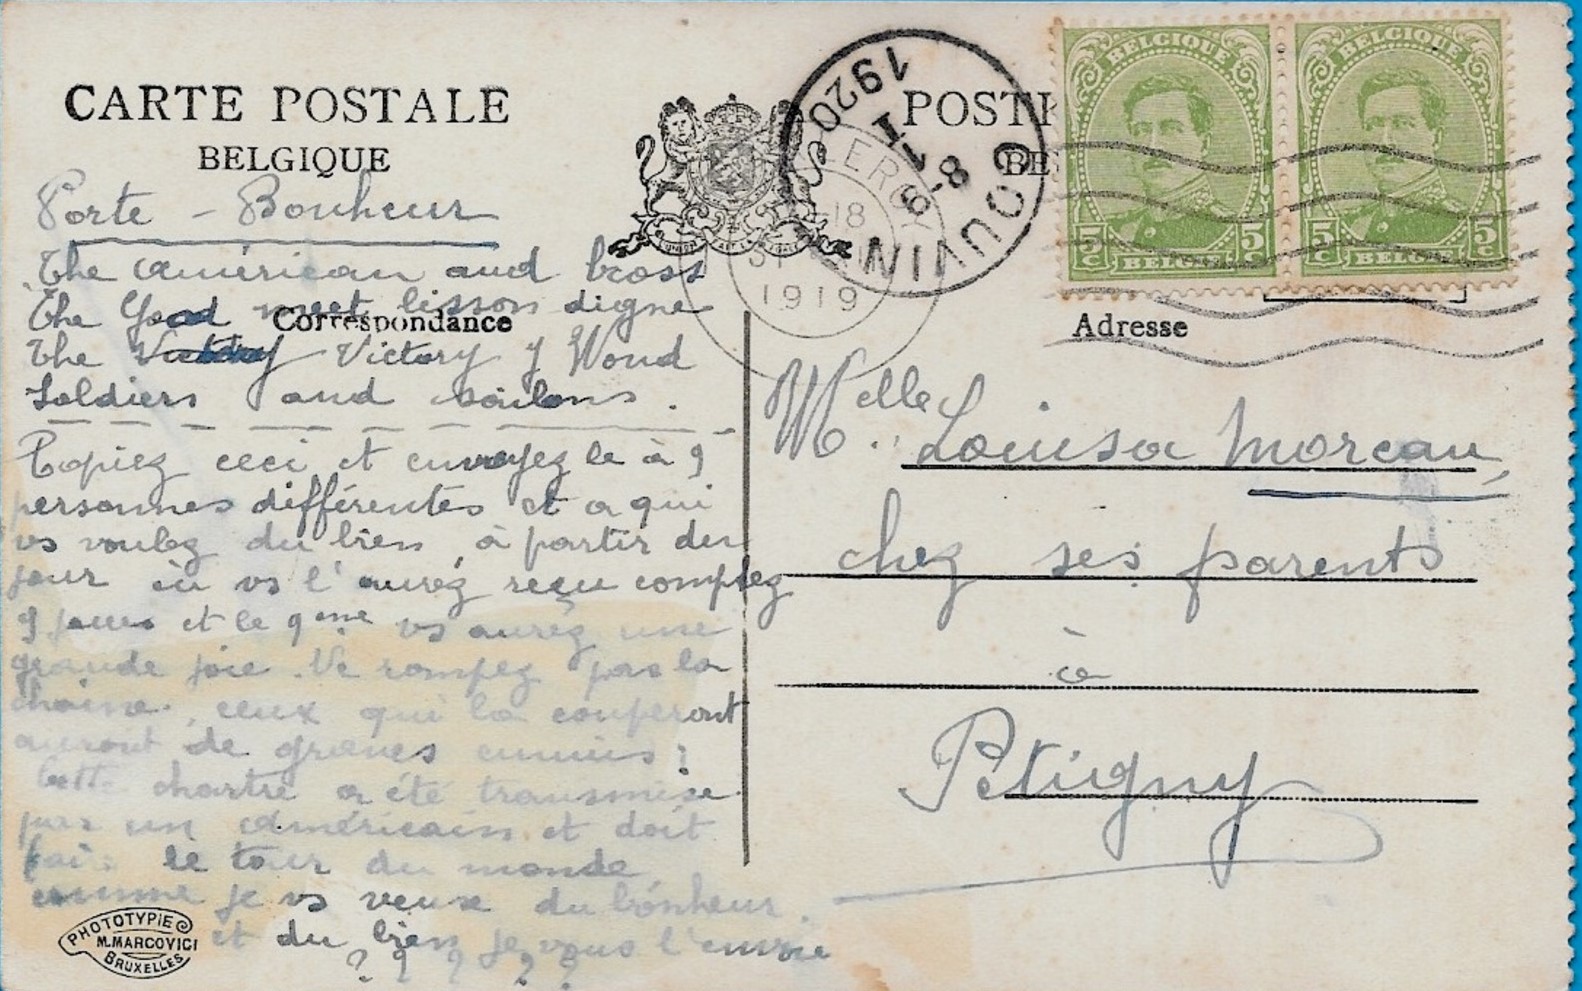 CARTE POSTALE
BELGIQUE
POSTK
BE
Porte - Bonheur
The américan and bross
The Good meet lisson digne
Correspondance
The Victory Victory of Woud
Soldiers and
Copiez ceci et envoyez le à 9
personnes différentes et a qui
vs voulez du bien, à partir du
jour où vs l'aurez reçu comptez
9 jours et le 9eme vs aurez une
grande joie. Ne rompez pas la
chaine, ceux qui la couperont
auront de graves ennuis ;
Cette chartre a été transmise
par un américain et doit
faire le tour du monde
comme je vs veux du bonheur.
et du bien je vous l'envoie
? ? ? ? ?
PHOTOTYPIE
M.MARCOVICI
BRUXELLES
COUVIN
8-9
11
1920
LEROY
18
31
1919
BELGIQUE
5 C 5 C
BELGIË
BELGIQUE
5 C 5 C
BELGIË
Adresse
Melle Louisa Moreau,
chez ses parents
à
Pétigny